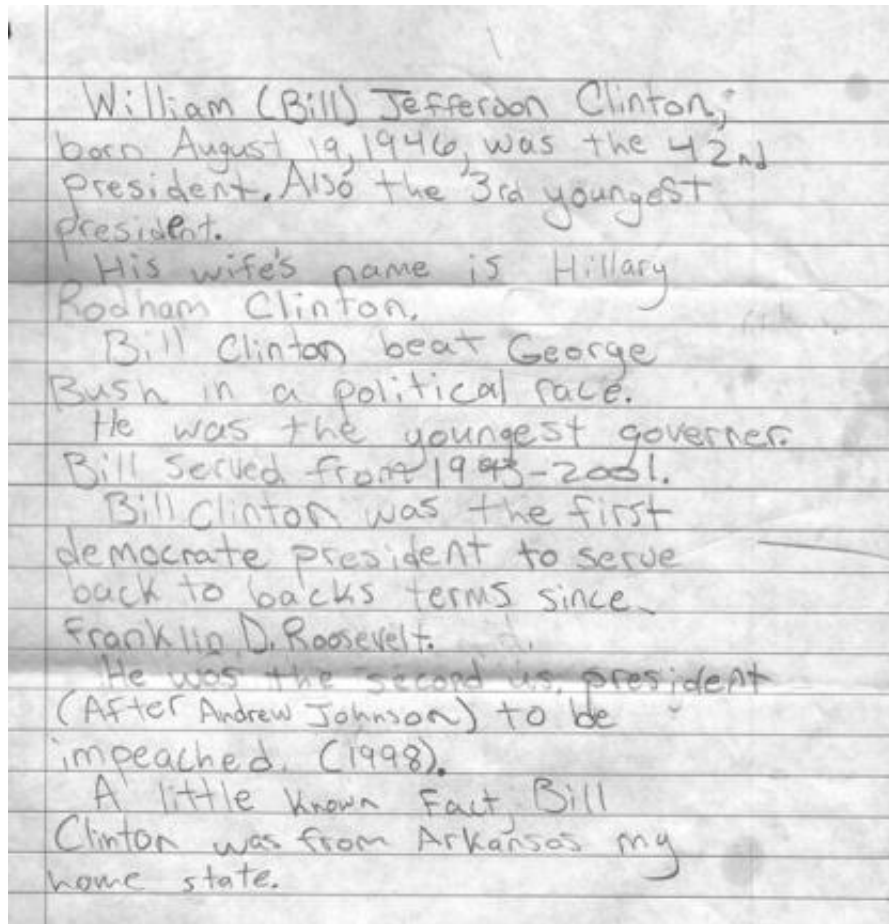 William (Bill) Jefferson Clinton,
born August 19, 1946, was the 42nd
president. Also the 3rd youngest
president.
His wife's name is Hillary
Rodham Clinton.
Bill Clinton beat George
Bush in a political race.
He was the youngest governer.
Bill served from 1993-2001.
Bill Clinton was the first
democrate president to serve
back to backs terms since
Franklin D. Roosevelt.
He was the second u.s. president
(After Andrew Johnson) to be
impeached. (1998).
A little known Fact, Bill
Clinton was from Arkansas my
home state.